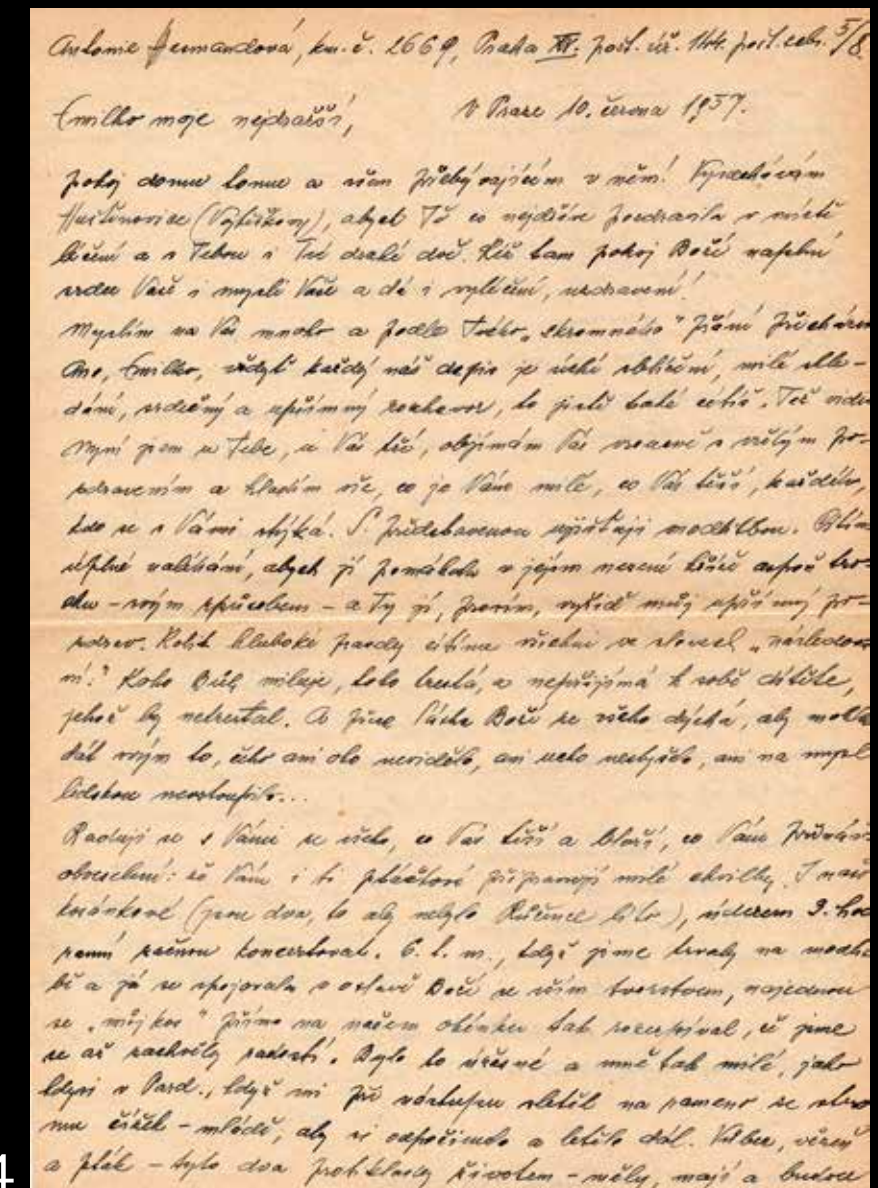 Antonie Hermandová, km. č. 2669, Praha XV. pošt. úř. 144. pošt. schr. 5/8
Emilko moje nejdražší, V Praze 10. června 1957.
pokoj domu tomu a všem přebývajícím v něm! Vypočítávám
(Vyšískovy), abych Tě co nejdříve pozdravila v místě
léčení a s Tebou i Tvé drahé dvě. Kéž tam pokoj Boží naplní
srdce Vaše i mysli Vaše a dá i vyléčení, uzdravení!
Myslím na Vás mnoho a podle Tvého „skromného" přání přicházím
Ano, Emilko, vždyť každý náš dopis je úzké sblížení, milé shle-
dání, srdečný a upřímný rozhovor, to jistě také cítíš. Též
Nyní jsem u Tebe, u Vás tří, objímám Vás vroucně s vřelým po-
zdravením a hladím vše, co je Vám milé, co Vás těší, každého,
kdo se s Vámi stýká. S. představenou ujišťuji modlitbou. Cítím
úplné naléhání, abych jí pomáhala v jejím nesení kříže aspoň tro-
chu - svým způsobem - a Ty jí, prosím, vyřiď můj upřímný po-
zdrav. Kolik hluboké pravdy cítíme všichni ve slovech „následová
ní." Koho Bůh miluje, toho trestá, a nepřijímá k sobě dítěte,
jehož by netrestal. A přece láska Boží ze všeho dýchá, aby mohla
dát svým to, čeho ani oko nevidělo, ani ucho neslyšelo, ani na mysl
lidskou nevstoupilo...
Raduji se s Vámi ze všeho, co Vás těší a blaží, co Vám přináší
obveselení: že Vám i ti ptáčkové připravují milé chvilky. I naši
kosánkové (jsou dva, to aby nebylo Růžence líto), úderem 3. hod
ranní začnou koncertovat. 6. t. m., když jsme trvaly na modlit
bě a já se spojovala v oslavě Boží se vším tvorstvem, najednou
se „můj kos" přímo na našem okénku tak rozezpíval, že jsme
se až zachvěly radostí. Bylo to úžasné a mně tak milé, jako
kdysi v Pard., když mi při nástupu sletěl na rameno se stro
mu čížek - mládě, aby si odpočinulo a letělo dál. Vůbec, vězeň
a pták - tyto dva protiklady životem - měly, mají a budou
4